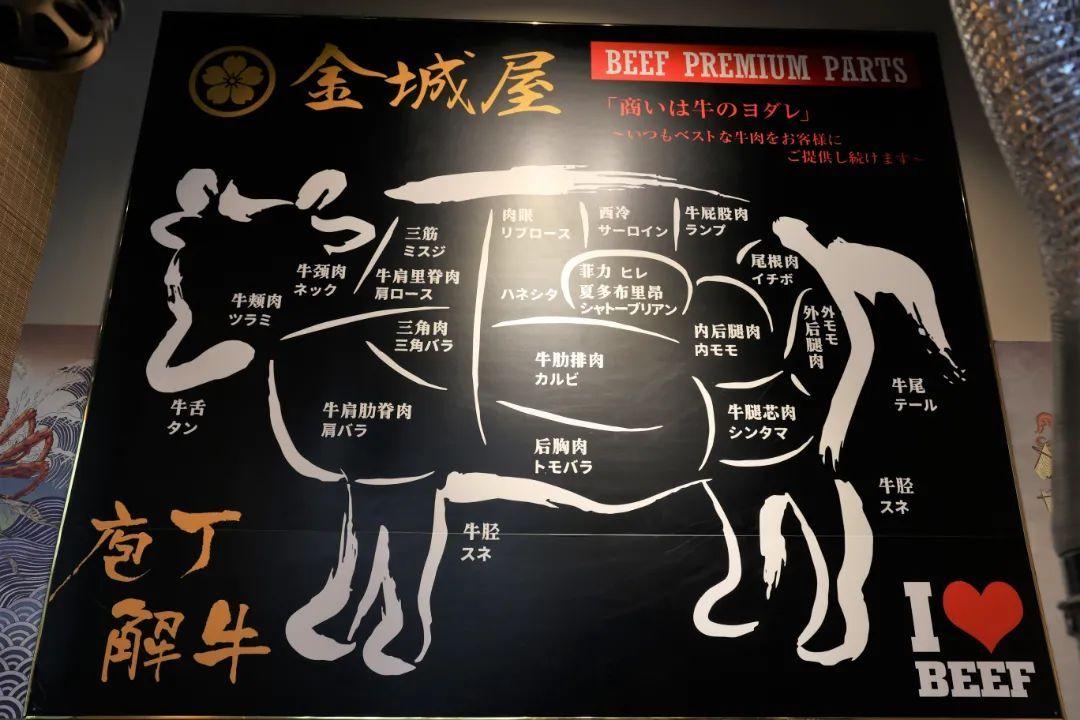 金城屋
BEEF PREMIUM PARTS
「商いは牛のヨダレ」
～いつもベストな牛肉をお客様に
ご提供し続けます～
肉眼
リブロース
西冷
サーロイン
牛屁股肉
ランプ
三筋
ミスジ
牛颈肉
ネック
牛肩里脊肉
肩ロース
牛颊肉
ツラミ
ハネシタ
菲力 ヒレ
夏多布里昂
シャトーブリアン
尾根肉
イチボ
三角肉
三角バラ
内后腿肉
内モモ
外モモ
外后腿肉
牛肋排肉
カルビ
牛尾
テール
牛舌
タン
牛肩肋脊肉
肩バラ
牛腿芯肉
シンタマ
后胸肉
トモバラ
牛胫
スネ
牛胫
スネ
庖丁
解牛
I
BEEF